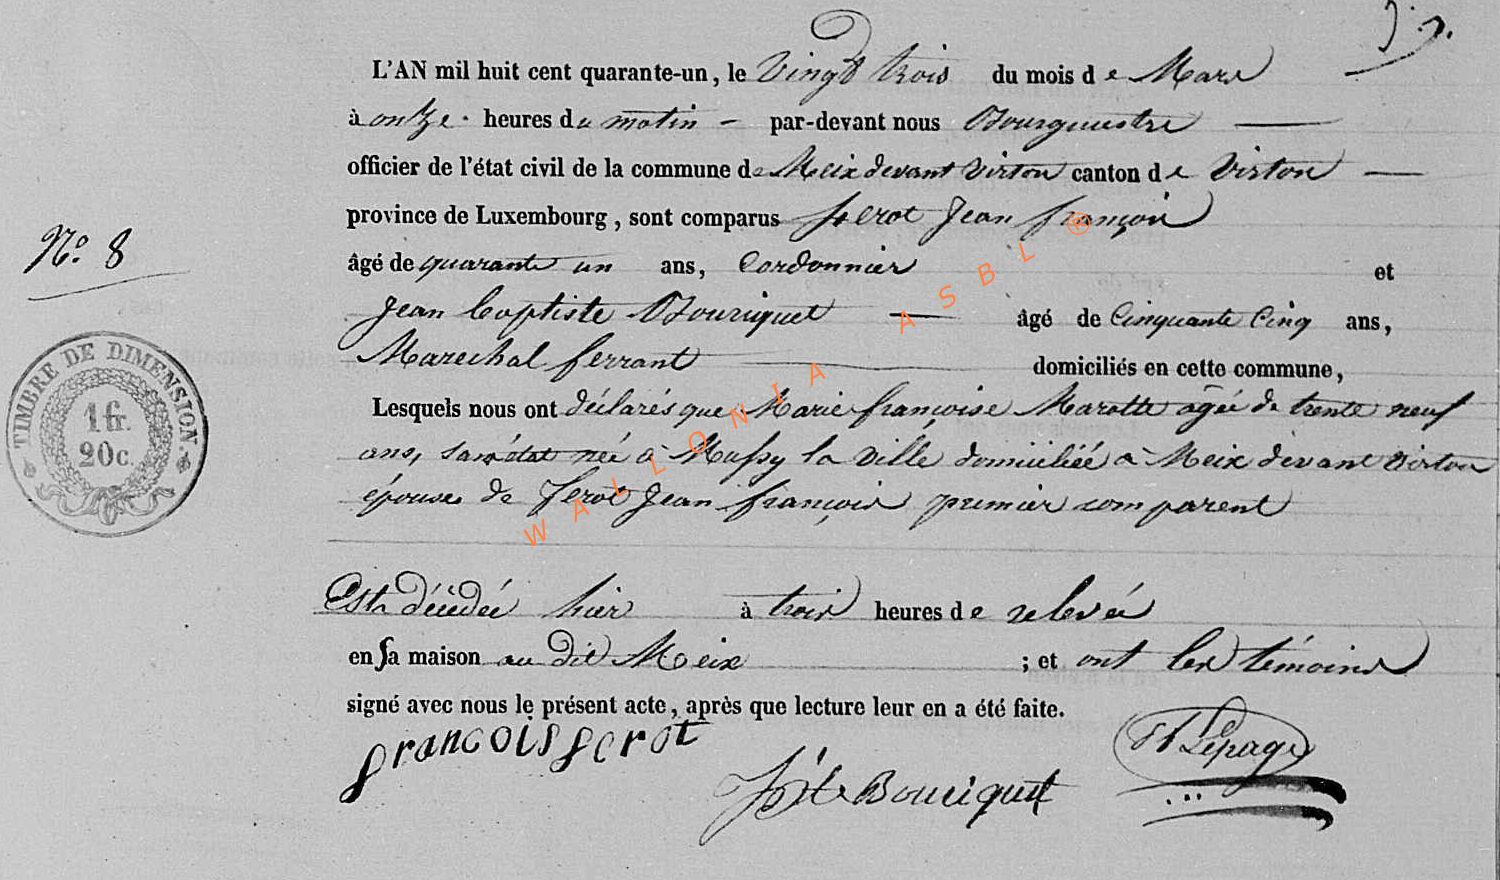 L'AN mil huit cent quarante-un, le Vingt trois du mois de Mars
à onze heures du matin - par-devant nous Bourgmestre —
officier de l'état civil de la commune de Meix devant Virton canton de Virton —
province de Luxembourg, sont comparus ferot Jean françois
N.º 8
âgé de quarante un ans, Cordonnier et
Jean baptiste Bouriquet — âgé de Cinquante Cinq ans,
Marechal ferrant domiciliés en cette commune,
Lesquels nous ont déclarés que Marie françoise Marotte agée de trente neuf
ans, sans état née à Mussy la ville domiciliée à Meix devant virton
épouse de ferot Jean françois premier comparent
Est décédée hier à trois heures de relevée
en sa maison au dit Meix ; et ont les témoins
signé avec nous le présent acte, après que lecture leur en a été faite.
francois ferot
JBte Bouriquet
Lepage
TIMBRE DE DIMENSION
1 fr.
20 c.
WALLONIA ASBL ®